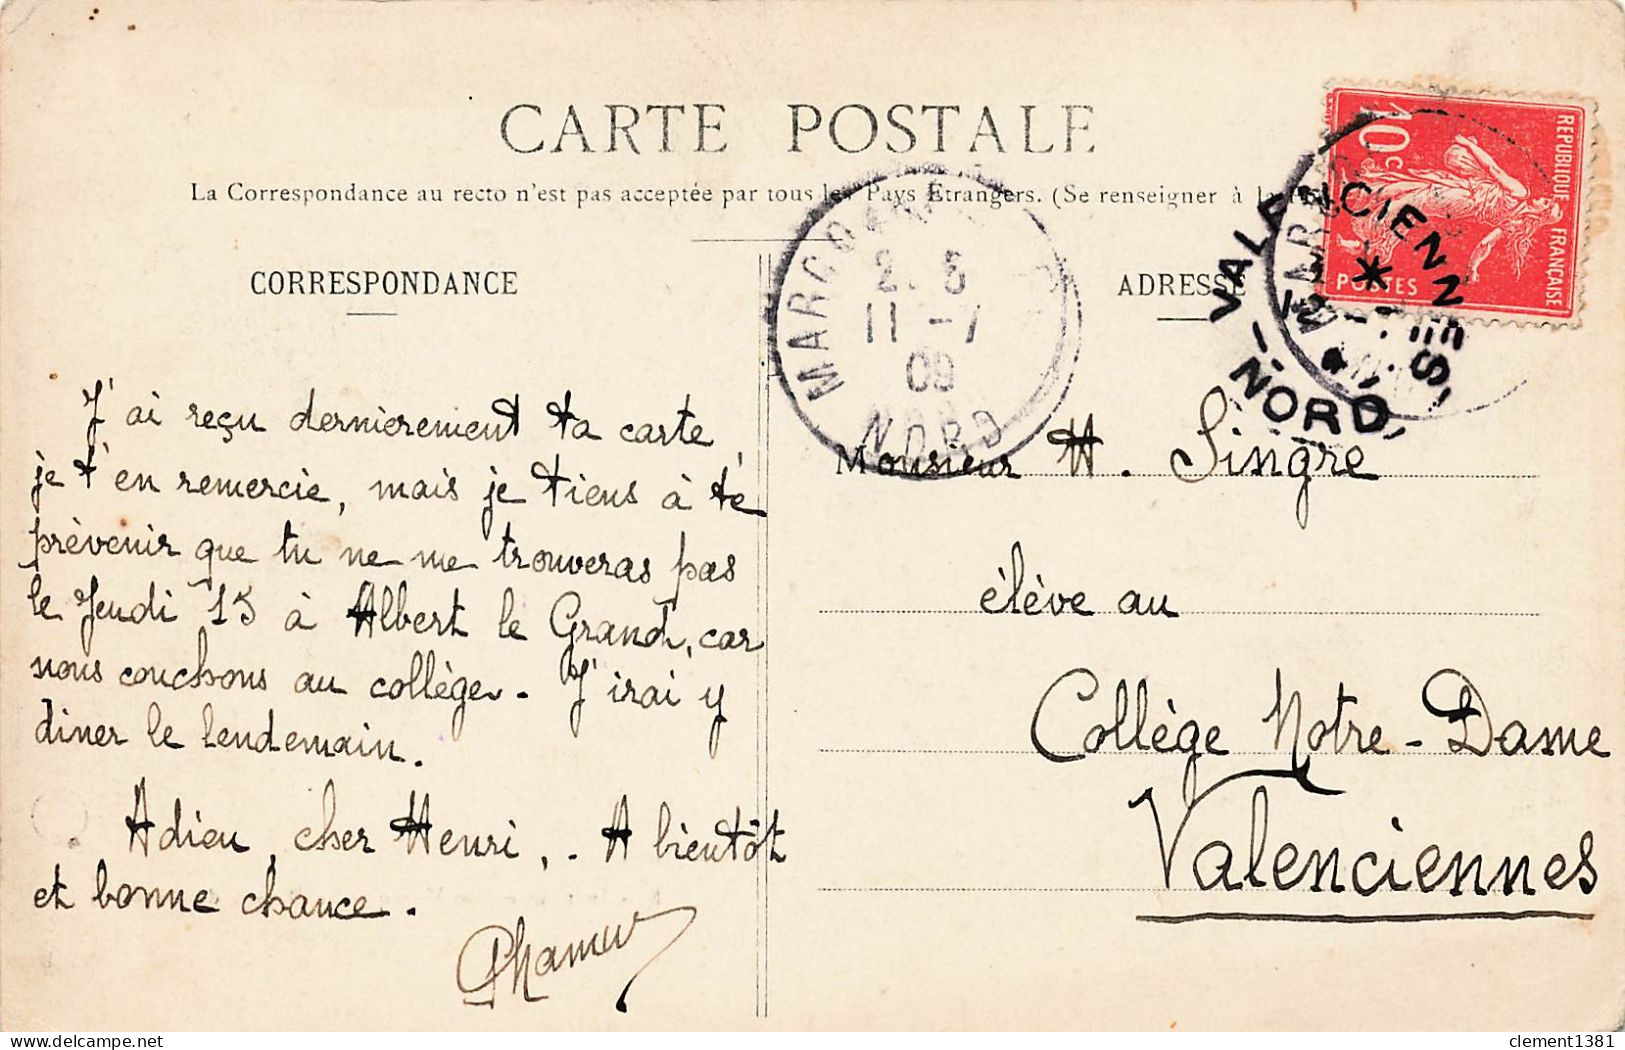 CARTE POSTALE
La Correspondance au recto n'est pas acceptée par tous les Pays Etrangers. (Se renseigner à la
CORRESPONDANCE
ADRESSE
REPUBLIQUE FRANÇAISE
10c
POSTES
VALENCIENNES
NORD
MARCO
11 - 7
09
NORD
J'ai reçu dernierement ta carte
je t'en remercie, mais je tiens à te
prévenir que tu ne me trouveras pas
le Jeudi 15 à Albert le Grand, car
nous couchons au collège. J'irai y
diner le lendemain.
Adieu, cher Henri, . A bientôt
et bonne chance.
Monsieur H. Singre
élève au
Collège Notre-Dame
Valenciennes
clement1381